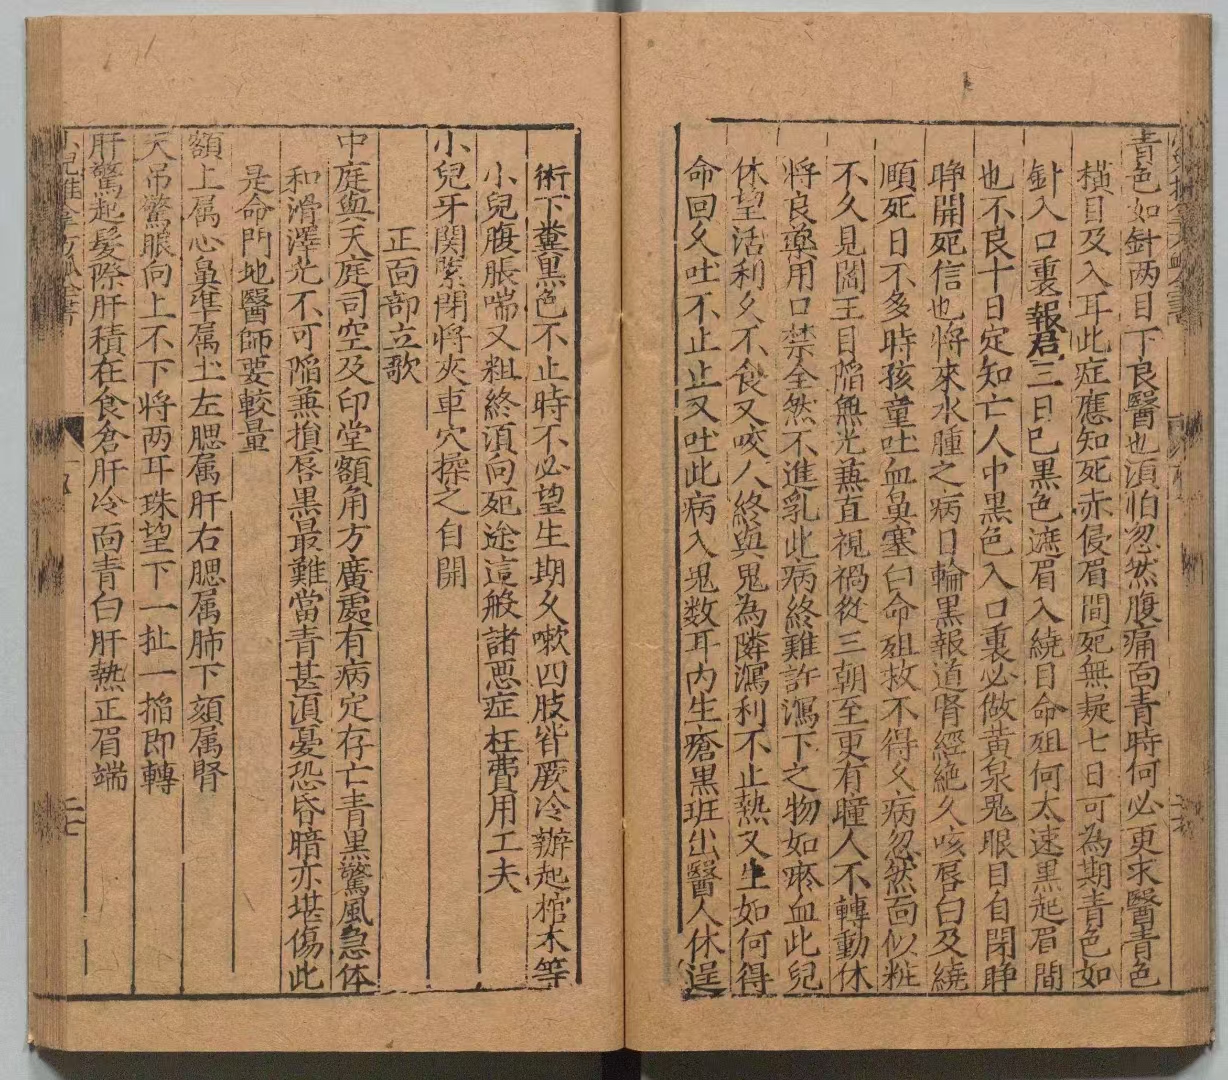 青色如針两目下良醫也湏怕忽然腹痛面青時何必更求醫青色
橫目及入耳此症應知死赤侵眉間死無疑七日可為期青色如
針入口裏報君三日已黑色遮眉入繞目命殂何太速黑起眉間
也不良十日定知亡人中黑色入口裏必做黃泉鬼眼目自閉睁
睁開死信也將來水腫之病日輪黑報道腎經絶久咳唇白及繞
頤死日不多時孩童吐血鼻塞白命殂救不得久病忽然面似粧
不久見閻王目陷無光蕪直視禍從三朝至更有瞳人不轉動休
將良藥用口禁全然不進乳此病終難許瀉下之物如瘀血此兒
休望活利久不食又咬人終與鬼為隣瀉利不止熱又生如何得
命回久吐不止止又吐此病入鬼数耳内生瘡黑班出醫人休逞
術下糞黑色不止時不必望生期久嗽四肢皆厥冷辦起棺木等
小兒腹脹喘又粗終湏向死途這般諸恶症枉費用工夫
小兒牙関緊閉將夾車穴操之自開
正面部立歌
中庭與天庭司空及印堂額角方廣處有病定存亡青黑驚風急体
和滑澤光不可陷兼損唇黑最難當青甚湏憂恐昏暗亦堪傷此
是命門地醫師要較量
額上属心鼻準属土左腮属肝右腮属肺下頦属腎
天吊驚眼向上不下將两耳珠望下一扯一掐即轉
肝驚起髮際肝積在食倉肝冷面青白肝熱正眉端
二七